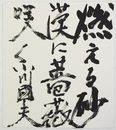 燃える砂
漠に薔薇
咲く 小川国夫